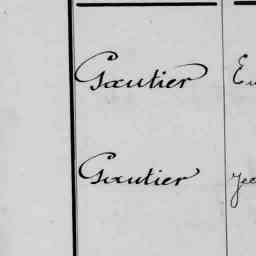 Gautier Eu
Gautier Jea